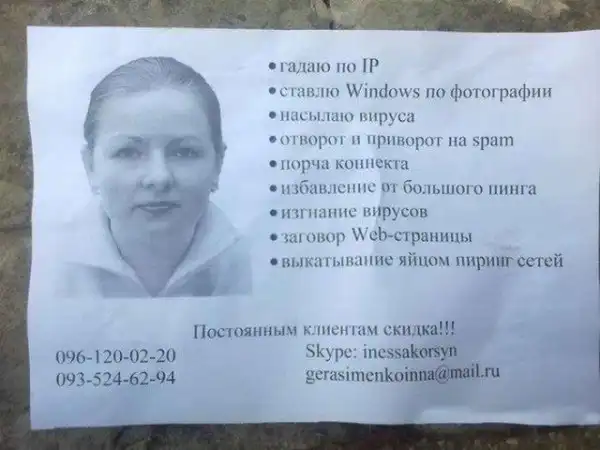 • гадаю по IP
• ставлю Windows по фотографии
• насылаю вируса
• отворот и приворот на spam
• порча коннекта
• избавление от большого пинга
• изгнание вирусов
• заговор Web-страницы
• выкатывание яйцом пиринг сетей
Постоянным клиентам скидка!!!
096-120-02-20 Skype: inessakorsyn
093-524-62-94 gerasimenkoinna@mail.ru